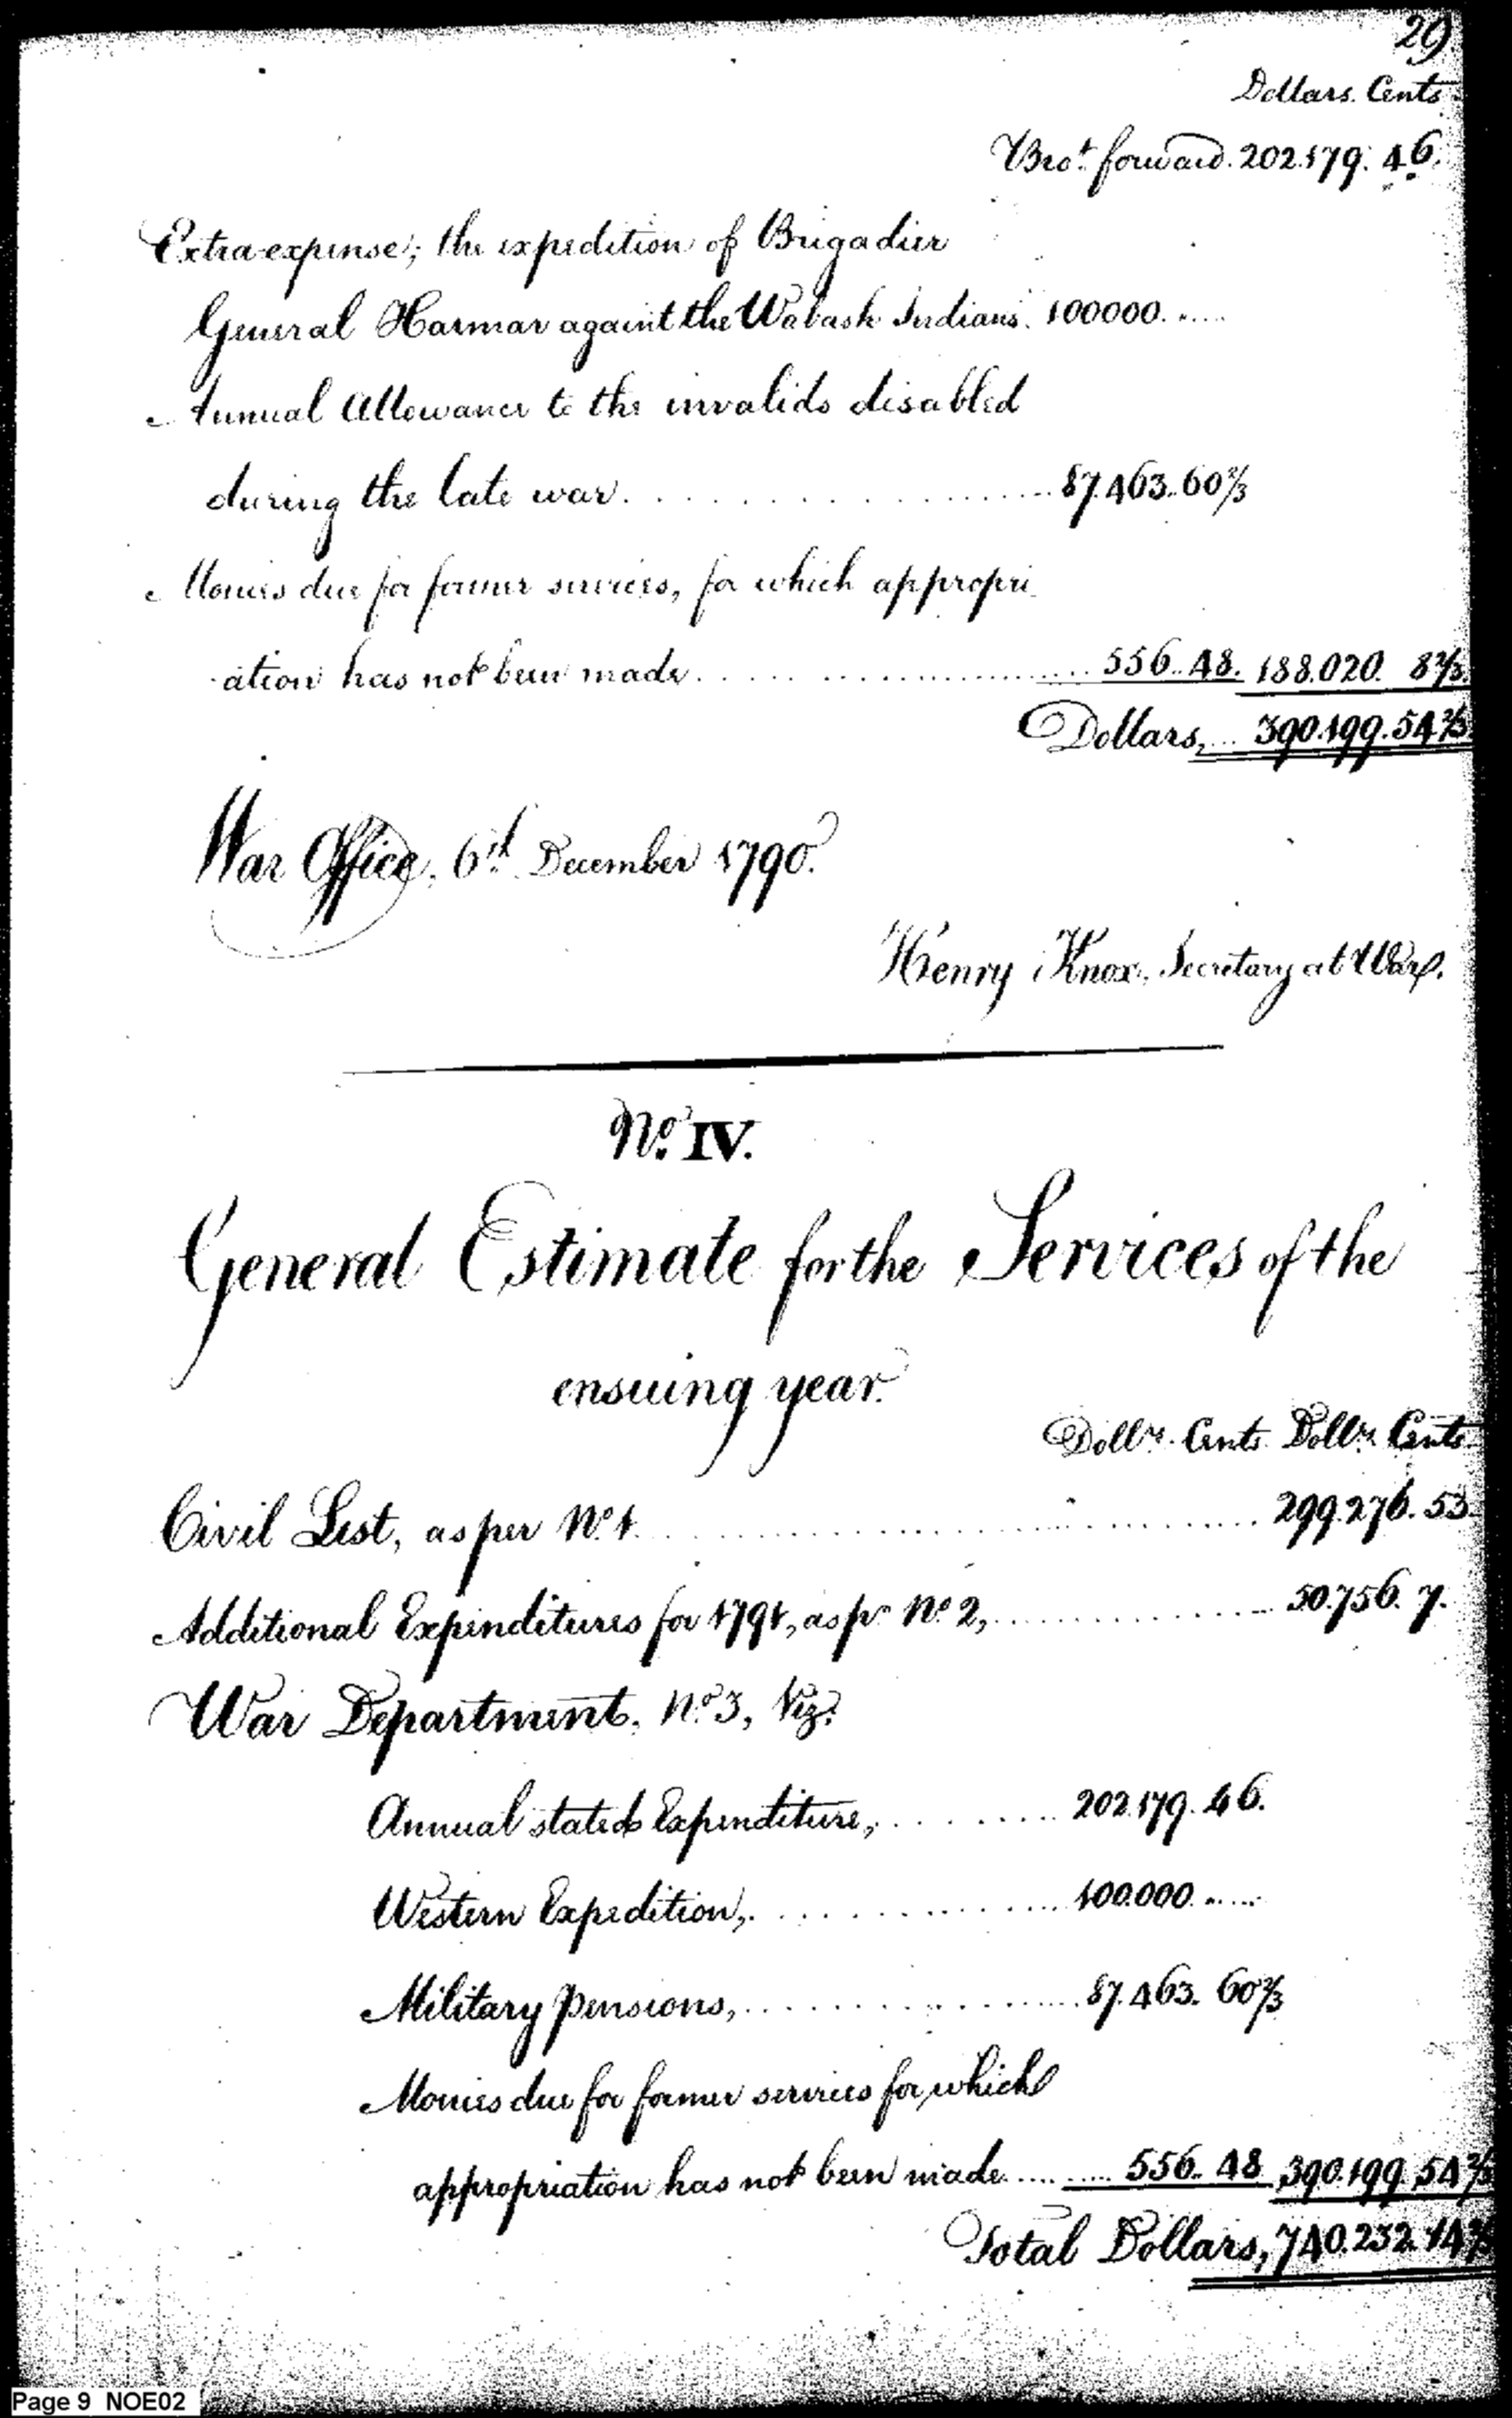 29
Dollars. Cents
Brot. forward. 202.179. 46.
Extra expense; the expedition of Brigadier
General Harmar againt the Wabash Indians. 100000. .....
Annual Allowance to the invalids disabled
during the late war. .................... 87.463..60 2/3
Monies due for former services, for which appropri
ation has not been made. .................... 556..48. 188.020. 8 2/3.
Dollars, ... 390.199. 54 2/3
War Office, 6th December 1790.
Henry Knox, Secretary at War.
No. IV.
General Estimate for the Services of the
ensuing year.
Dollrs. Cents Dollrs. Cents
Civil List, as per No. 1. .................... 299.276. 53.
Additional Expenditures for 1791, as pr No. 2, .................... 50.756. 7.
War Department, No. 3, Viz.
Annual stated Expenditure, ......... 202.179. 46.
Western Expedition, .............. 100.000. .....
Military pensions, .............. 87.463. 60 2/3
Monies due for former services for which
appropriation has not been made ........ 556. 48 390.199. 54 2/3
Total Dollars, 740.232. 14 2/3
Page 9 NOE02